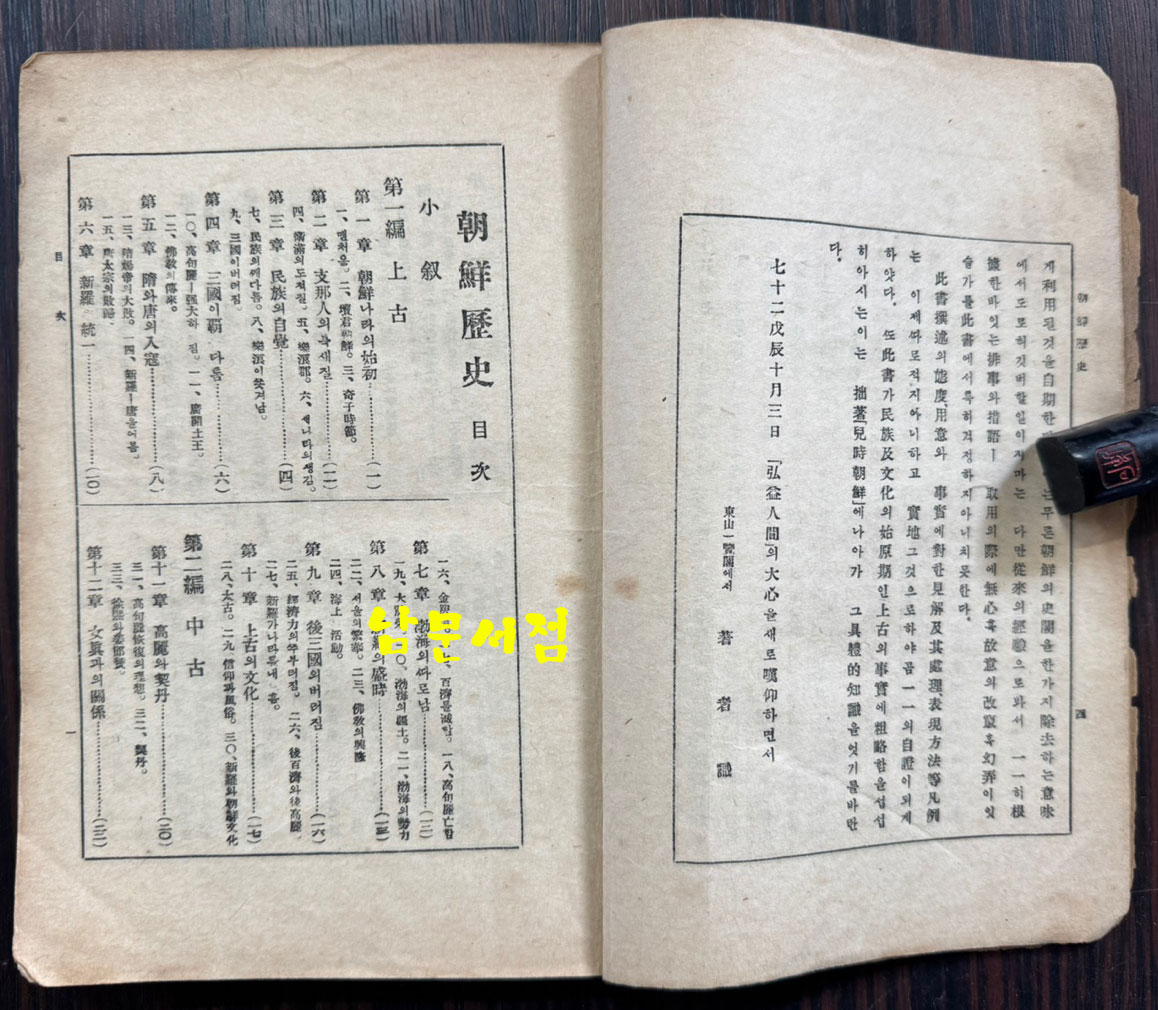 朝鮮歷史
四
게 利用될것을自期한
는무론朝鮮의史園을한가지除去하는意味
에서도또히깃버할일이지마는 다만從來의經驗으로와서 一一히根
據한바잇는排事와措語ㅣ 取用의際에無心혹故意의改竄혹幻弄이잇
슬가를此書에서특히걱정하지아니치못한다.
此書撰述의態度、用意와 事實에對한見解及其處理、表現方法等凡例
는 이제따로적지아니하고 實地그것으로하야곰 一一의自證이되게
하얏다. 또此書가民族及文化의始原期인上古의事實에粗略함을섭섭
히아시는이는 拙著「兒時朝鮮」에나아가 그具體的知識을엇기를바란
다.
七十二戊辰十月三日 「弘益人間」의大心을새로嘆仰하면서
東山一覽閣에서 著者識
朝鮮歷史 目次
小叙
第一編 上古
第一章 朝鮮나라의始初……(一)
一、맨처음。二、壇君朝鮮。三、奇子時節。
第二章 支那人의북새질……(二)
四、衛滿의도적질。五、樂浪郡。六、새나라의생김。
第三章 民族의自覺……(四)
七、民族의깨다름。八、樂浪이쫏겨남。
九、三國이버러짐。
第四章 三國이覇다톰……(六)
一〇、高句麗ㅣ强大하야짐。一一、廣開土王。
一二、佛敎의傳來。
第五章 隋와唐의入寇……(八)
一三、隋煬帝의大敗。一四、新羅ㅣ唐을어름。
一五、唐太宗의敗歸。
第六章 新羅의統一……(一〇)
百濟를滅함。一八、高句麗亡함
第七章 渤海의따로남……(一二)
渤海의疆土。二一、渤海의勢力
第八章 新羅의盛時……(一三)
二二、서울의繁華。二三、佛敎의興隆
二四、海上活動。
第九章 後三國의버러짐……(一六)
二五、經濟力의쭈부러짐。二六、後百濟와後高麗。
二七、新羅가나라를내흠。
第十章 上古의文化……(一七)
二八、太古。二九、信仰과風俗。三〇、新羅와朝鮮文化
第二編 中古
第十一章 高麗와契丹……(二〇)
三一、高句麗恢復의理想。三二、契丹。
三三、徐熙와姜邯贊。
第十二章 女眞과의關係……(二二)
目次
一
남문서점